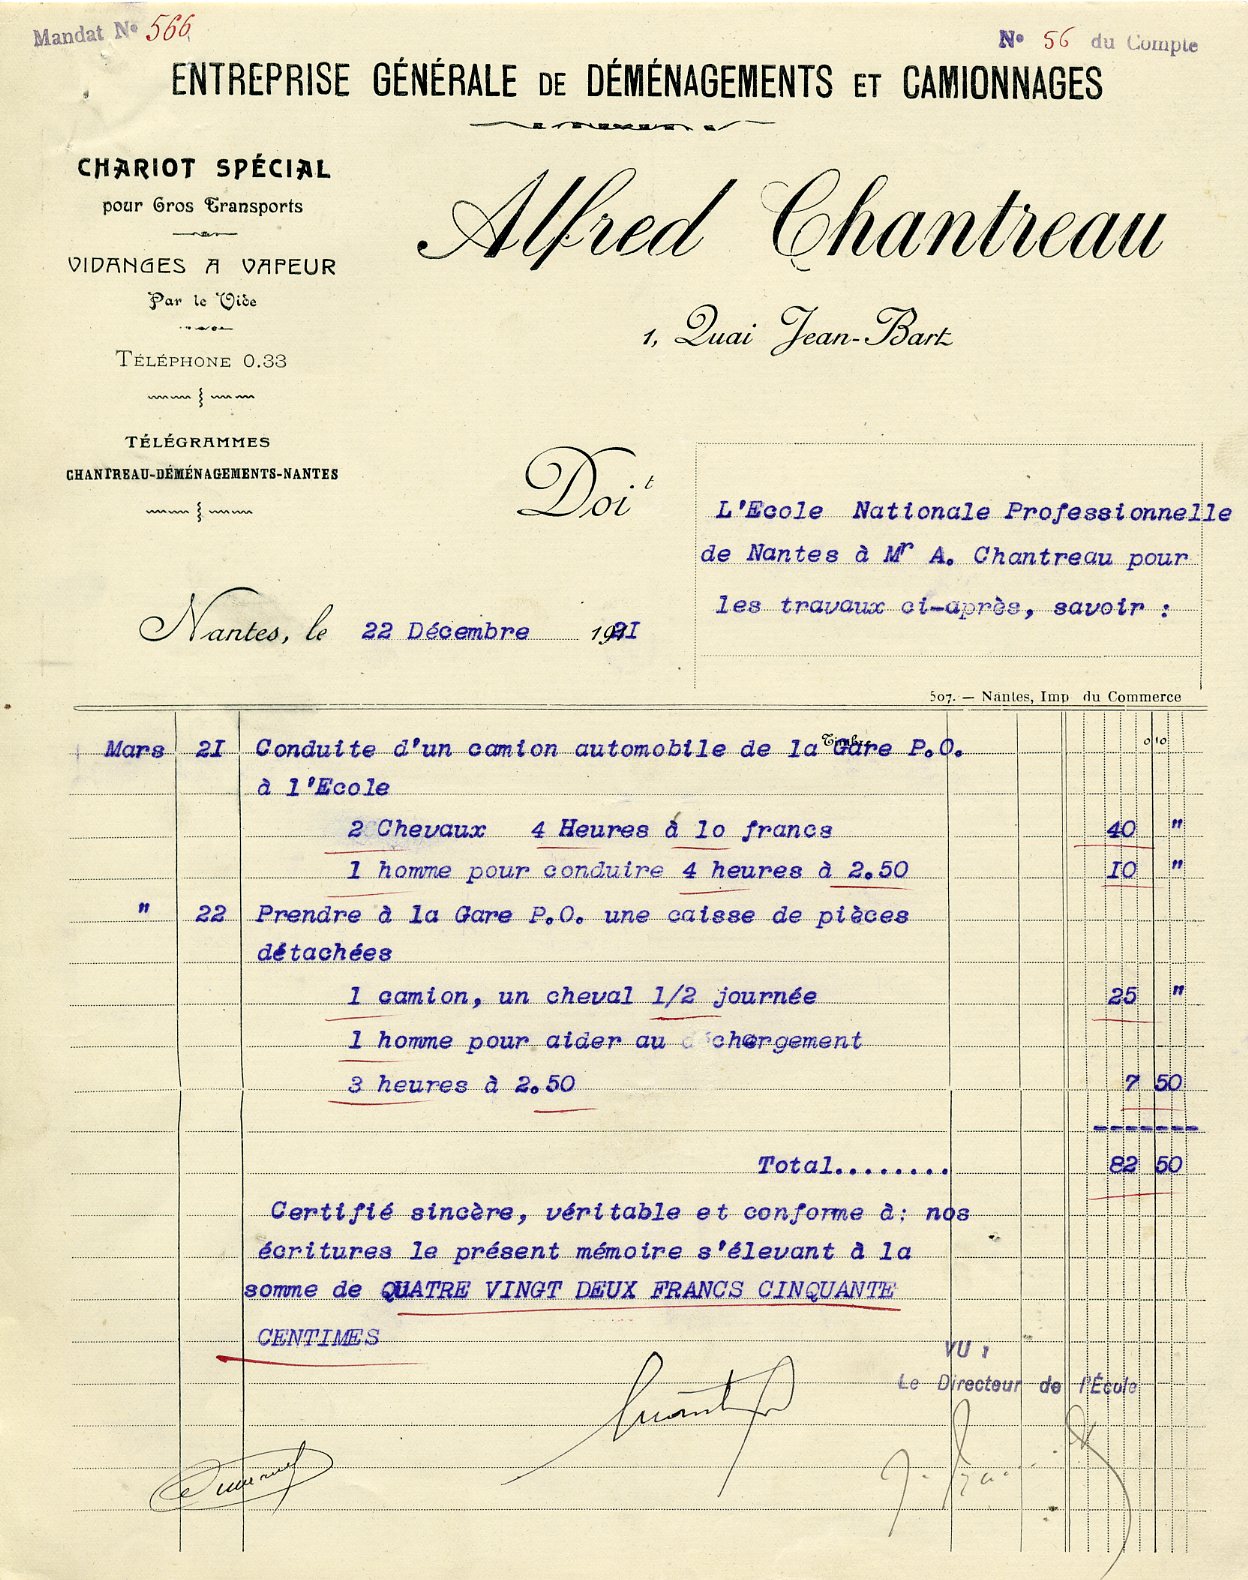 Mandat N° 566
N° 56 du Compte
ENTREPRISE GÉNÉRALE DE DÉMÉNAGEMENTS ET CAMIONNAGES
CHARIOT SPÉCIAL
pour Gros Transports
VIDANGES A VAPEUR
Par le Vide
TÉLÉPHONE 0.33
TÉLÉGRAMMES
CHANTREAU-DÉMÉNAGEMENTS-NANTES
Alfred Chantreau
1, Quai Jean-Bart
Doit
L'Ecole Nationale Professionnelle
de Nantes à Mr A. Chantreau pour
les travaux ci-après, savoir :
Nantes, le 22 Décembre 1921
507. — Nantes, Imp du Commerce
Mars 21 Conduite d'un camion automobile de la Gare P.O.
Timbre 0 10
à l'Ecole
2 Chevaux 4 Heures à 10 francs 40 "
1 homme pour conduire 4 heures à 2.50 10 "
" 22 Prendre à la Gare P.O. une caisse de pièces
détachées
1 camion, un cheval 1/2 journée 25 "
1 homme pour aider au déchargement
3 heures à 2.50 7 50
Total........ 82 50
Certifié sincère, véritable et conforme à: nos
écritures le présent mémoire s'élevant à la
somme de QUATRE VINGT DEUX FRANCS CINQUANTE
CENTIMES
VU :
Le Directeur de l'École